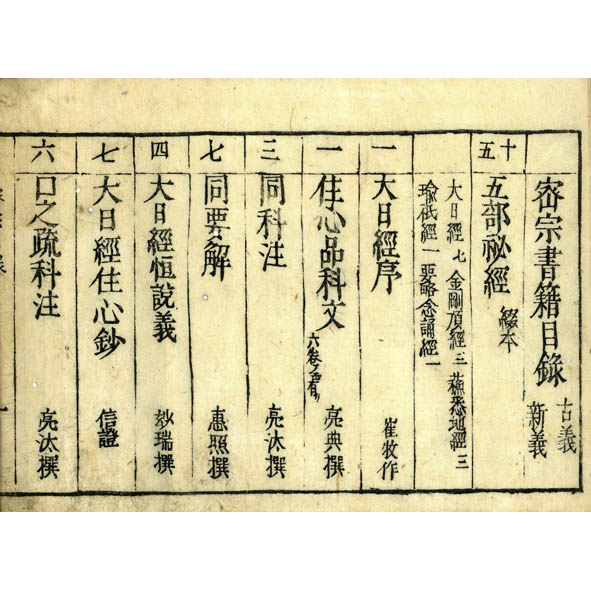 密宗書籍目錄 古義 新義
十五 五部祕經 綴本
大日經 七 金剛頂經 三 蘇悉地經 三
瑜祇經 一 要略念誦經 一
一 大日經序 崔牧作
一 住心品科文 六卷 亮典撰
三 同科注 亮汰撰
七 同要解 惠照撰
四 大日經恒說義 妙瑞撰
七 大日經住心鈔 信證
六 口之疏科注 亮汰撰